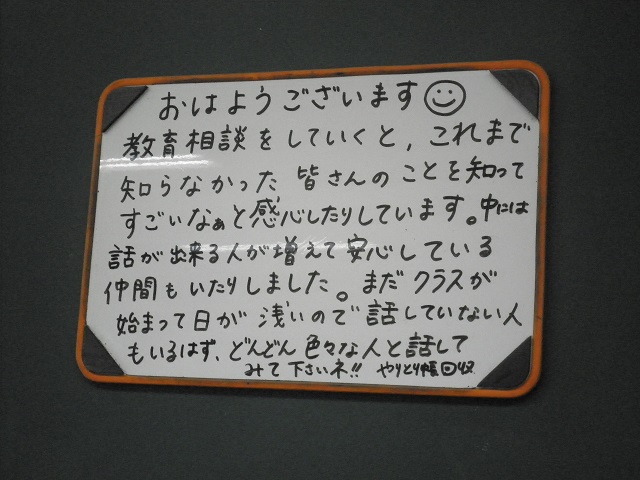 おはようございます☺
教育相談をしていくと、これまで
知らなかった 皆さんの ことを知って
すごいなぁと感心したりしています。中には
話が出来る人が増えて安心している
仲間もいたりしました。まだクラスが
始まって日が浅いので話していない人
もいるはず、どんどん色々な人と話して
みて下さいネ!! やりとり帳回収